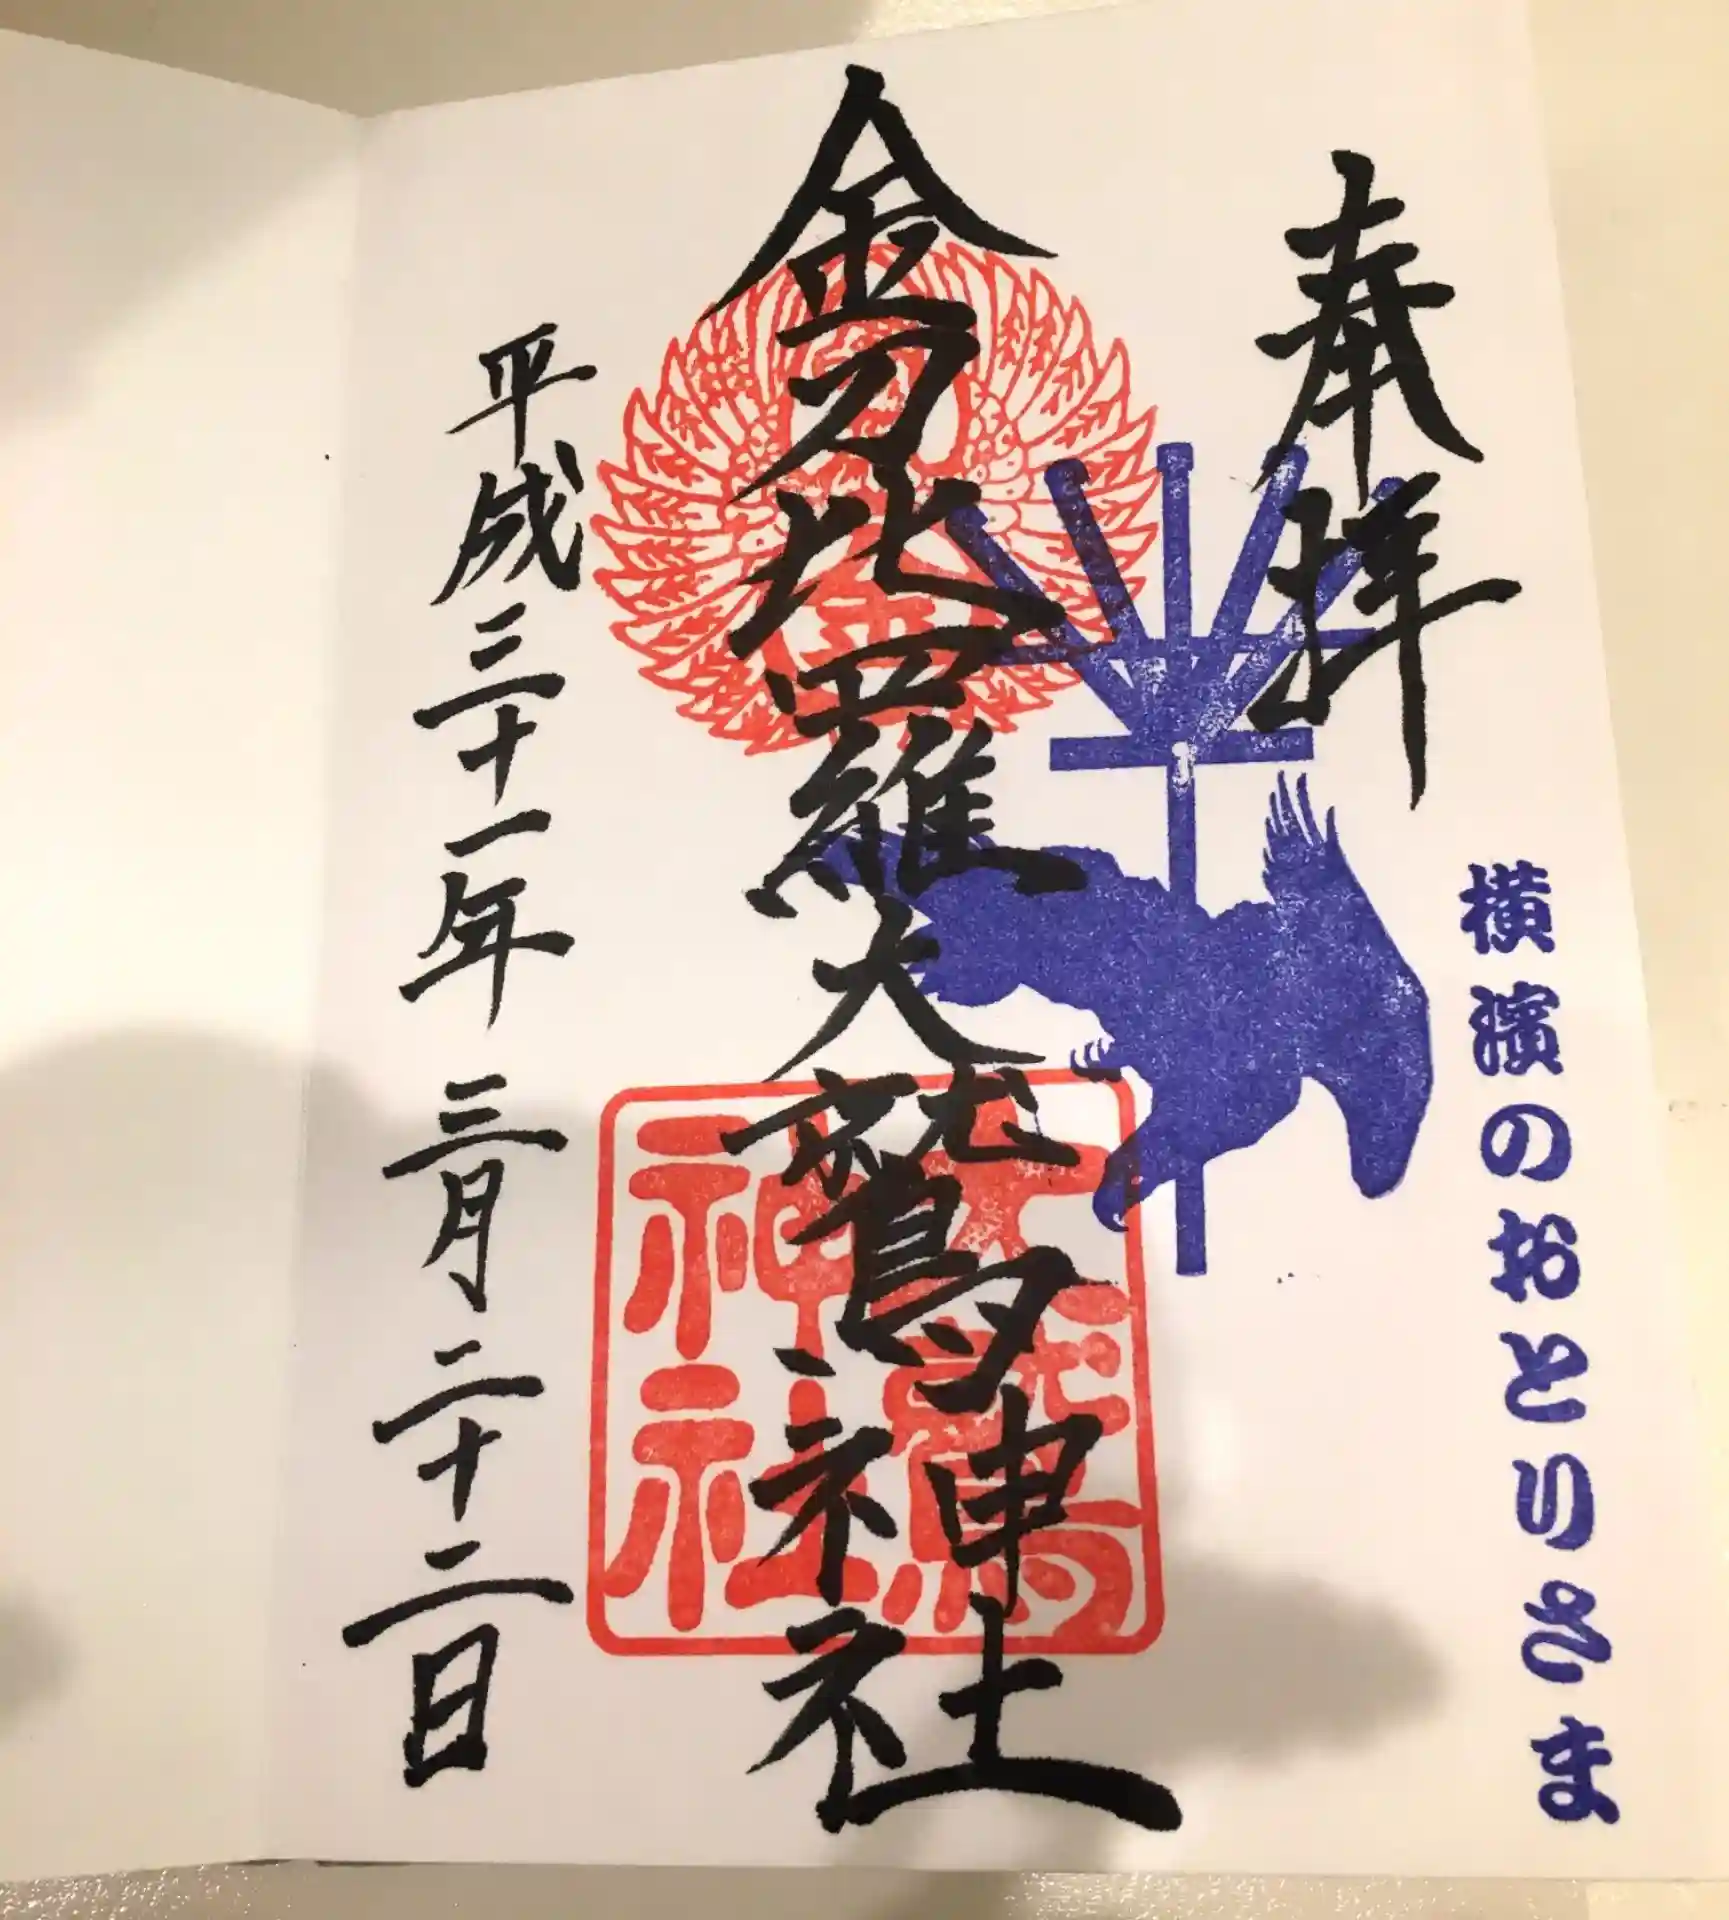 奉拝
横濱のおとりさま
金刀比羅大鷲神社
平成三十一年 三月二十二日
大鷲
神社